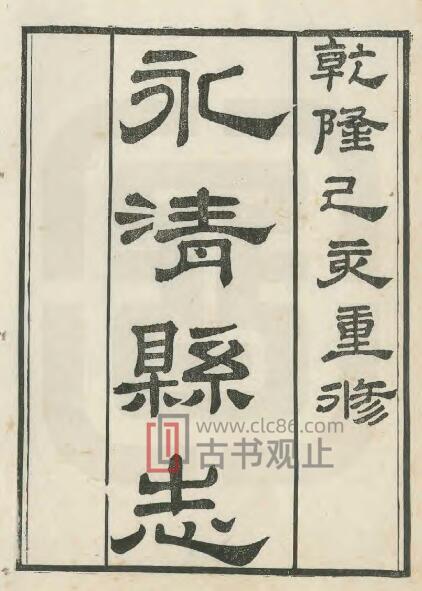 乾隆己亥重修
永清縣志
www.clc86.com
古书观止